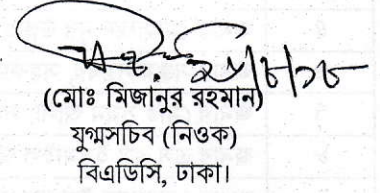 (মোঃ মিজানুর রহমান)
যুগ্মসচিব (নিওক)
বিএডিসি, ঢাকা।